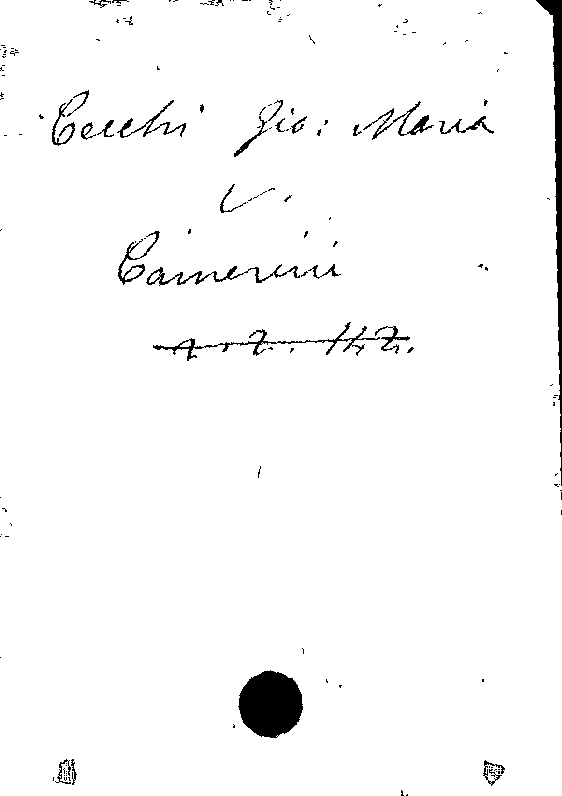 Cecchi Gio: Maria
V.
Camerini